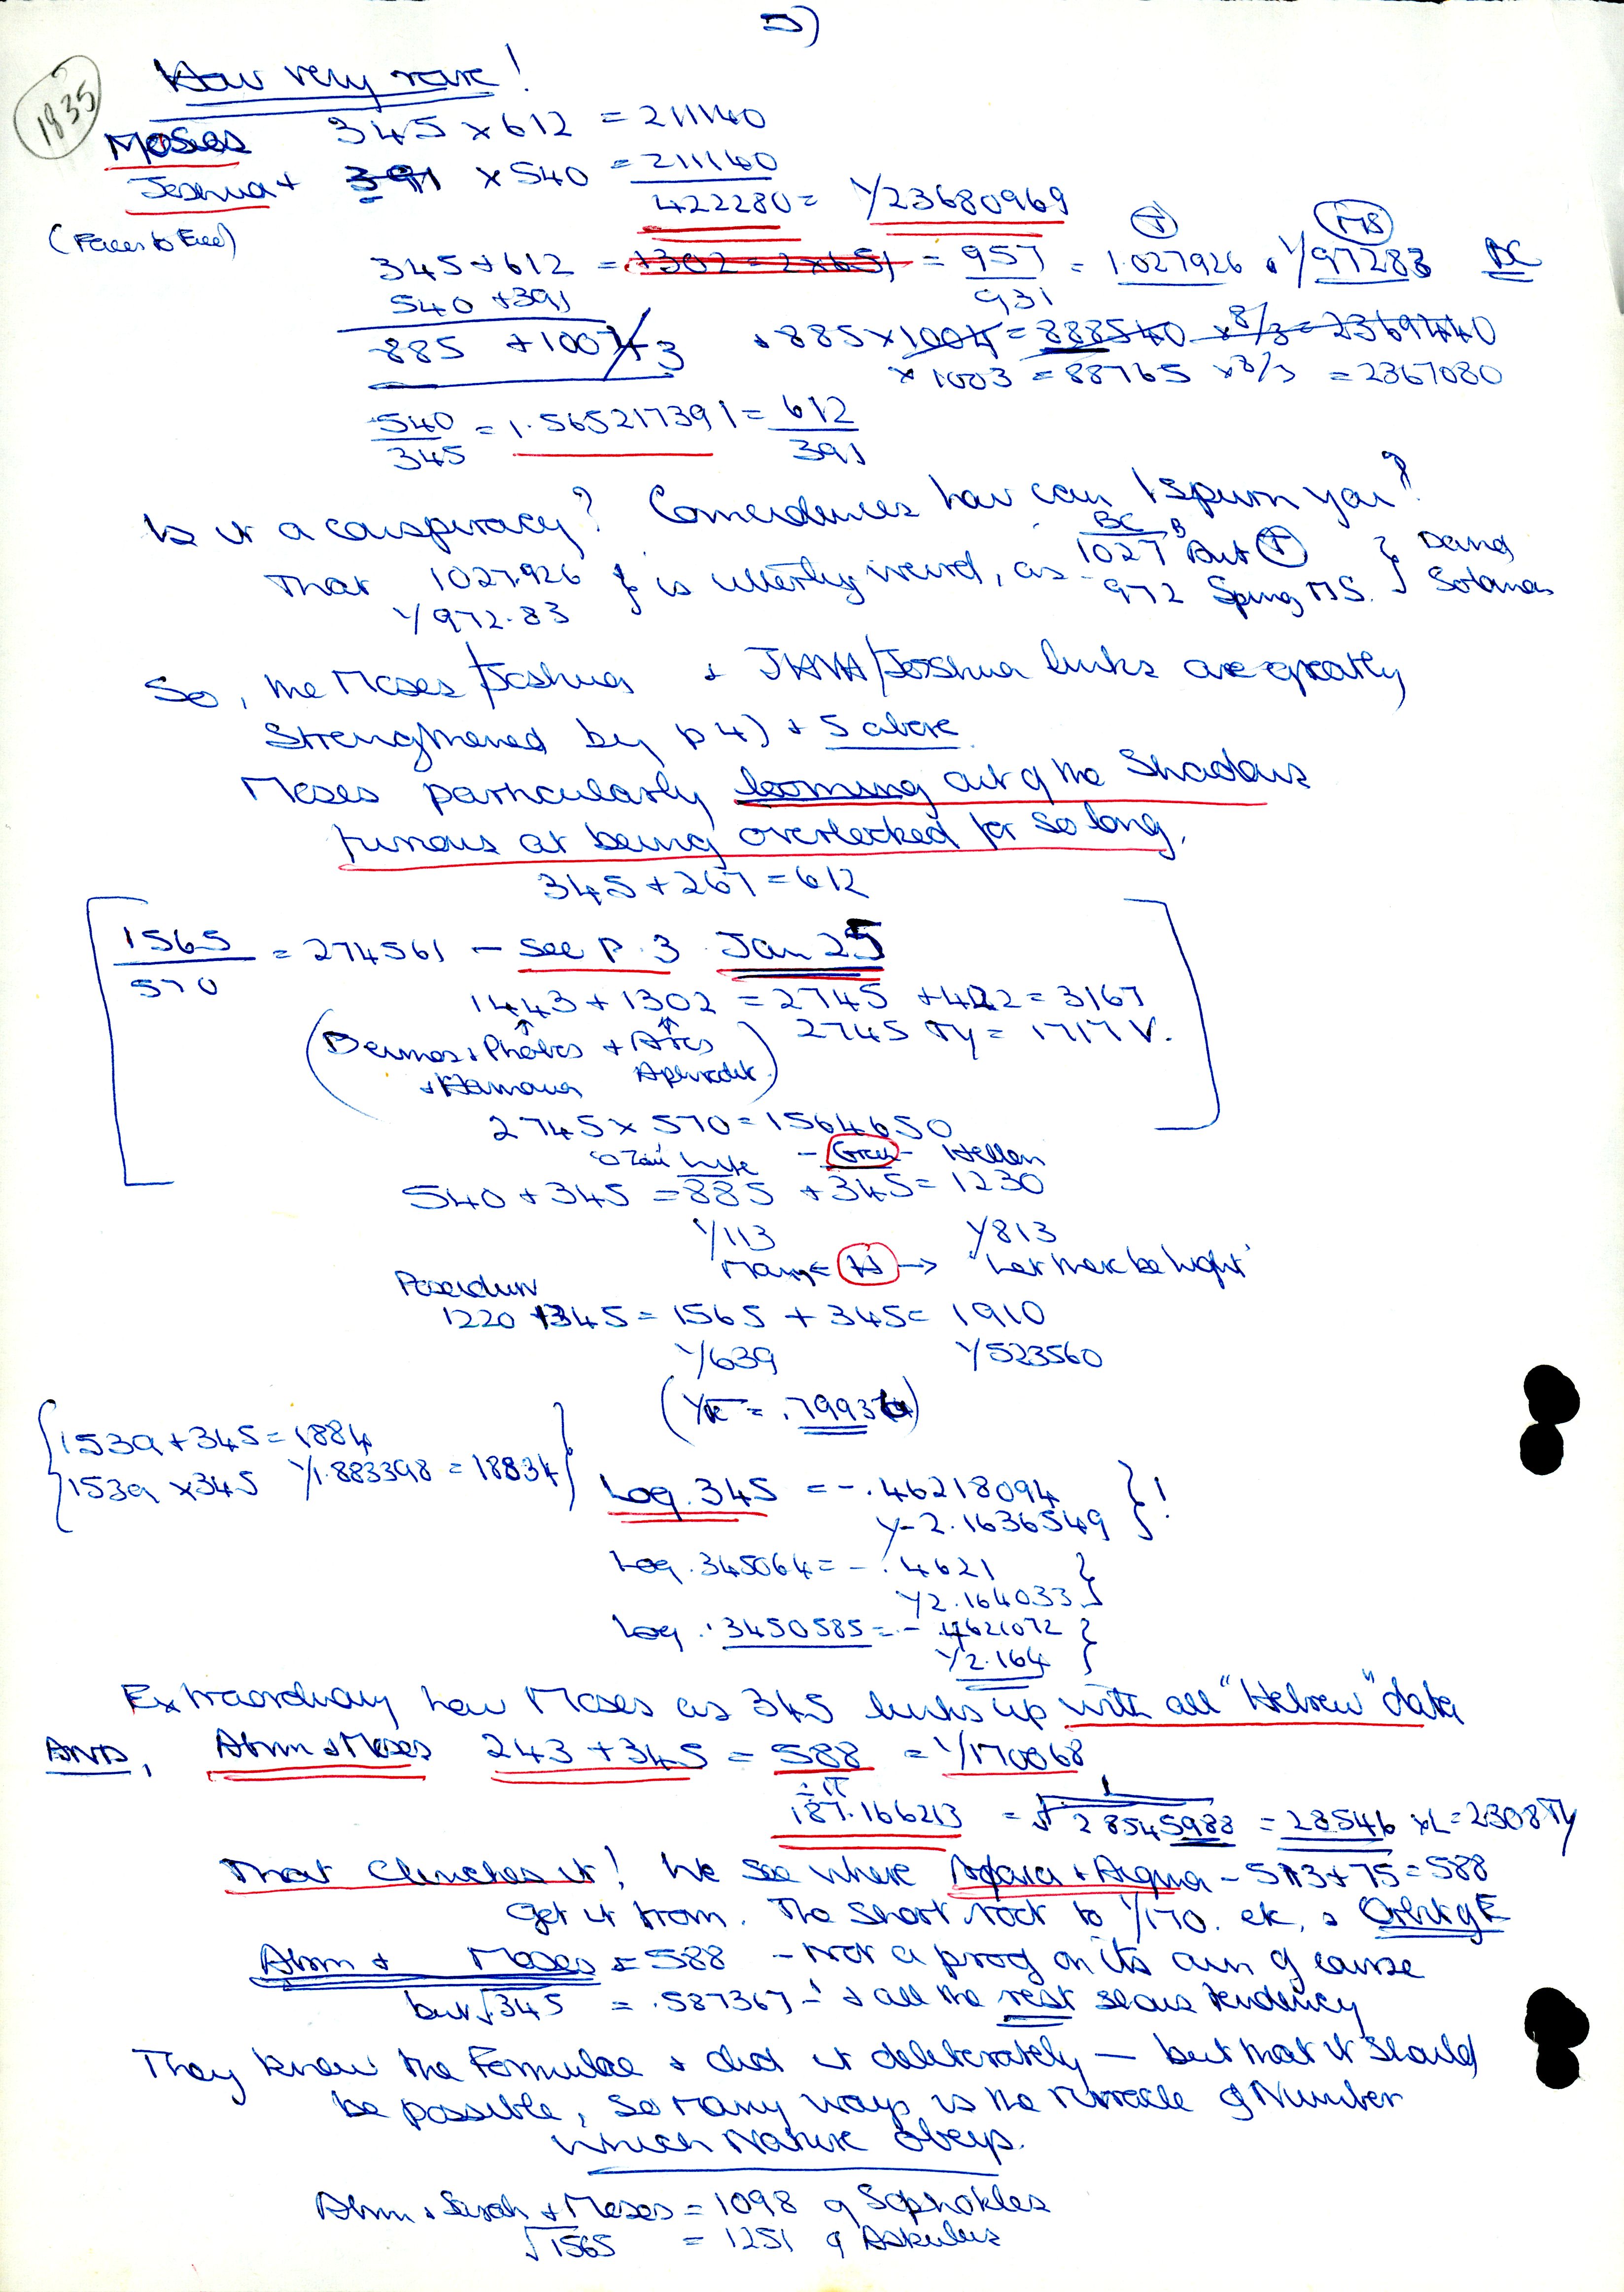 5)
1835
How very rare!
Moses 345 × 612 = 211140
Joshua + 391 × 540 = 211140
422280 = 1/23680969
(Faces to Face)
345 + 612 = +302 = 2×651 = 957 = 1.027926 1/97283 BC
540 + 391 931
885 + 1003 + 885 × 1004 = 888540 × 8/3 = 2369440
× 1003 = 88765 × 8/3 = 2367080
540 = 1.565217391 = 612
345 391
Is it a conspiracy? Coincidences how can I spurn you?
That 1027.926 } is utterly weird, as 1027 BC
1/972.83 972 Spring MS.
So, the Moses/Joshua + JHVH/Joshua links are greatly
strengthened by p 4) + 5 above
Moses particularly looming out of the Shadows
furious at being overlooked for so long.
345 + 267 = 612
1565 = 274561 - see P. 3 Jan 25
570
1443 + 1302 = 2745 + 422 = 3167
(Deimos + Phobos + Ares 2745 Ty = 1717 V.
+ Harmonia Aphrodite)
2745 × 570 = 1564650
Hellen
540 + 345 = 885 + 345 = 1230
1/113 1/813
Many ← → 'Let there be light'
Poseidon
1220 + 345 = 1565 + 345 = 1910
1/639 1/523560
{1539 + 345 = 1884
1539 × 345 1/1.883398 = 18834}
Log .345 = -.46218094 } !
1/-2.1636549
Log .345064 = -.4621 }
1/2.164033
Log .3450585 = -.4621072 }
1/2.164
Extraordinary how Moses as 345 links up with all "Hebrew" data
AND, Abrm + Moses 243 + 345 = 588 = 1/170068
÷ π
187.166213 = √ 1 28545988 = 28546 × L = 2308 Ty
That Clinches it! We see where + - 513 + 75 = 588
get it from. The short root to 1/170. etc, + Orbit of E
Abrm + Moses = 588 - Not a prog on its own of course
but √345 = .587367 - + all the rest shows tendency
They knew the Formulae + did it deliberately — but that it should
be possible, so many ways is the Miracle of Number
which Nature obeys.
Abrm + Sarah + Moses = 1098 of Sophokles
√1565 = 1251 of